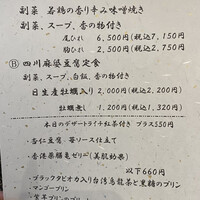 副菜 若鶏の香り辛み噌焼き
副菜、スープ、香の物付き
尾ひれ 6,500円(税込7,150円)
胸ひれ 2,500円(税込2,750円)
Ⓑ 四川麻婆豆腐定食
副菜、スープ、白飯、香の物付き
日生産牡蠣入り 2,000円(税込2,200円)
牡蠣無し 1,200円(税込1,320円)
本日のデザートライチ紅茶付き プラス550円
・杏仁豆腐 苺ソース仕立て
・香港藥膳亀ゼリー(美肌効果)
以下660円
・ブラックタピオカ入り台湾烏龍茶と黒糖のプリン
・マンゴープリン
・紫芋プリンの